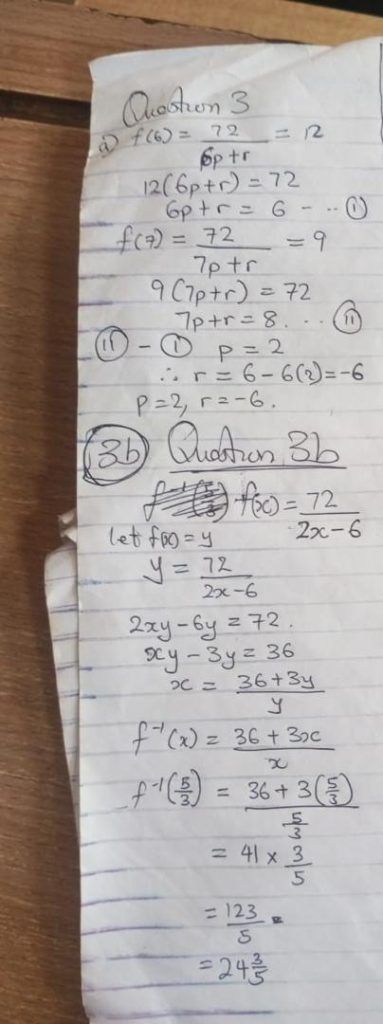 Question 3
a) f(6) = 72/(6p+r) = 12
12(6p+r) = 72
6p+r = 6 - .. (i)
f(7) = 72/(7p+r) = 9
9(7p+r) = 72
7p+r = 8. .. (ii)
(ii) - (i) p = 2
∴ r = 6-6(2) = -6
p=2, r=-6.
(3b) Question 3b
f(x) = 72/(2x-6)
let f(x) = y
y = 72/(2x-6)
2xy-6y = 72.
xy-3y = 36
x = (36+3y)/y
f⁻¹(x) = (36+3x)/x
f⁻¹(5/3) = (36+3(5/3))/(5/3)
= 41 × 3/5
= 123/5.
= 24 3/5